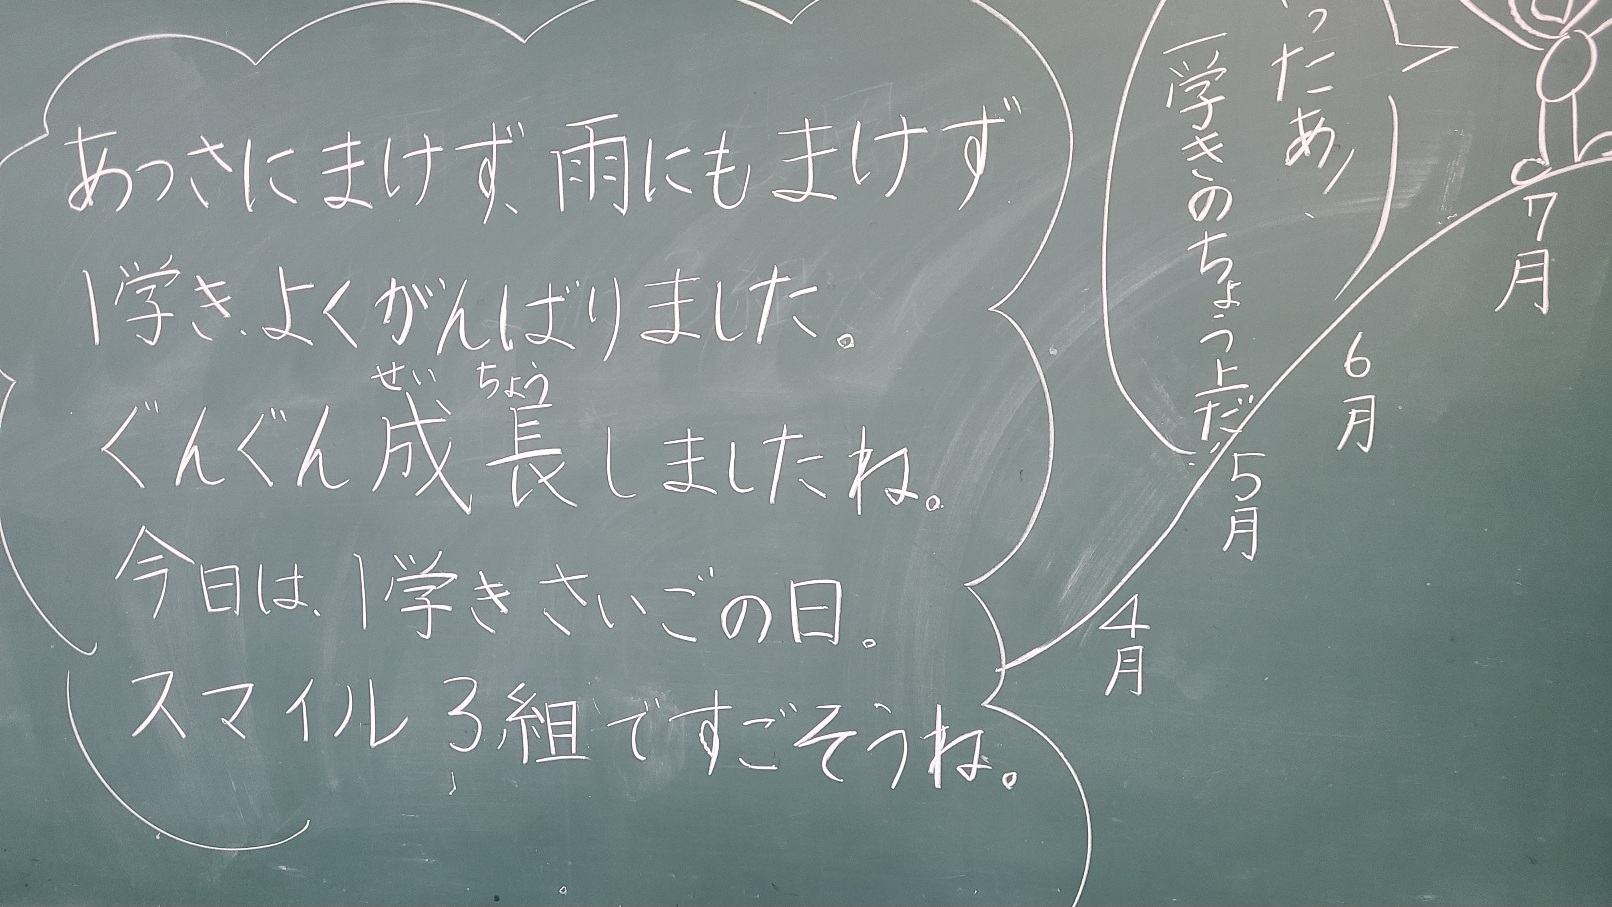 あっさにまけず、雨にもまけず
1学き、よくがんばりました。
せい ちょう
ぐんぐん成長しましたね。
今日は、1学きさいごの日。
スマイル3組ですごそうね。
ったぁ、
一学きのちょう上だ
7月
6月
5月
4月